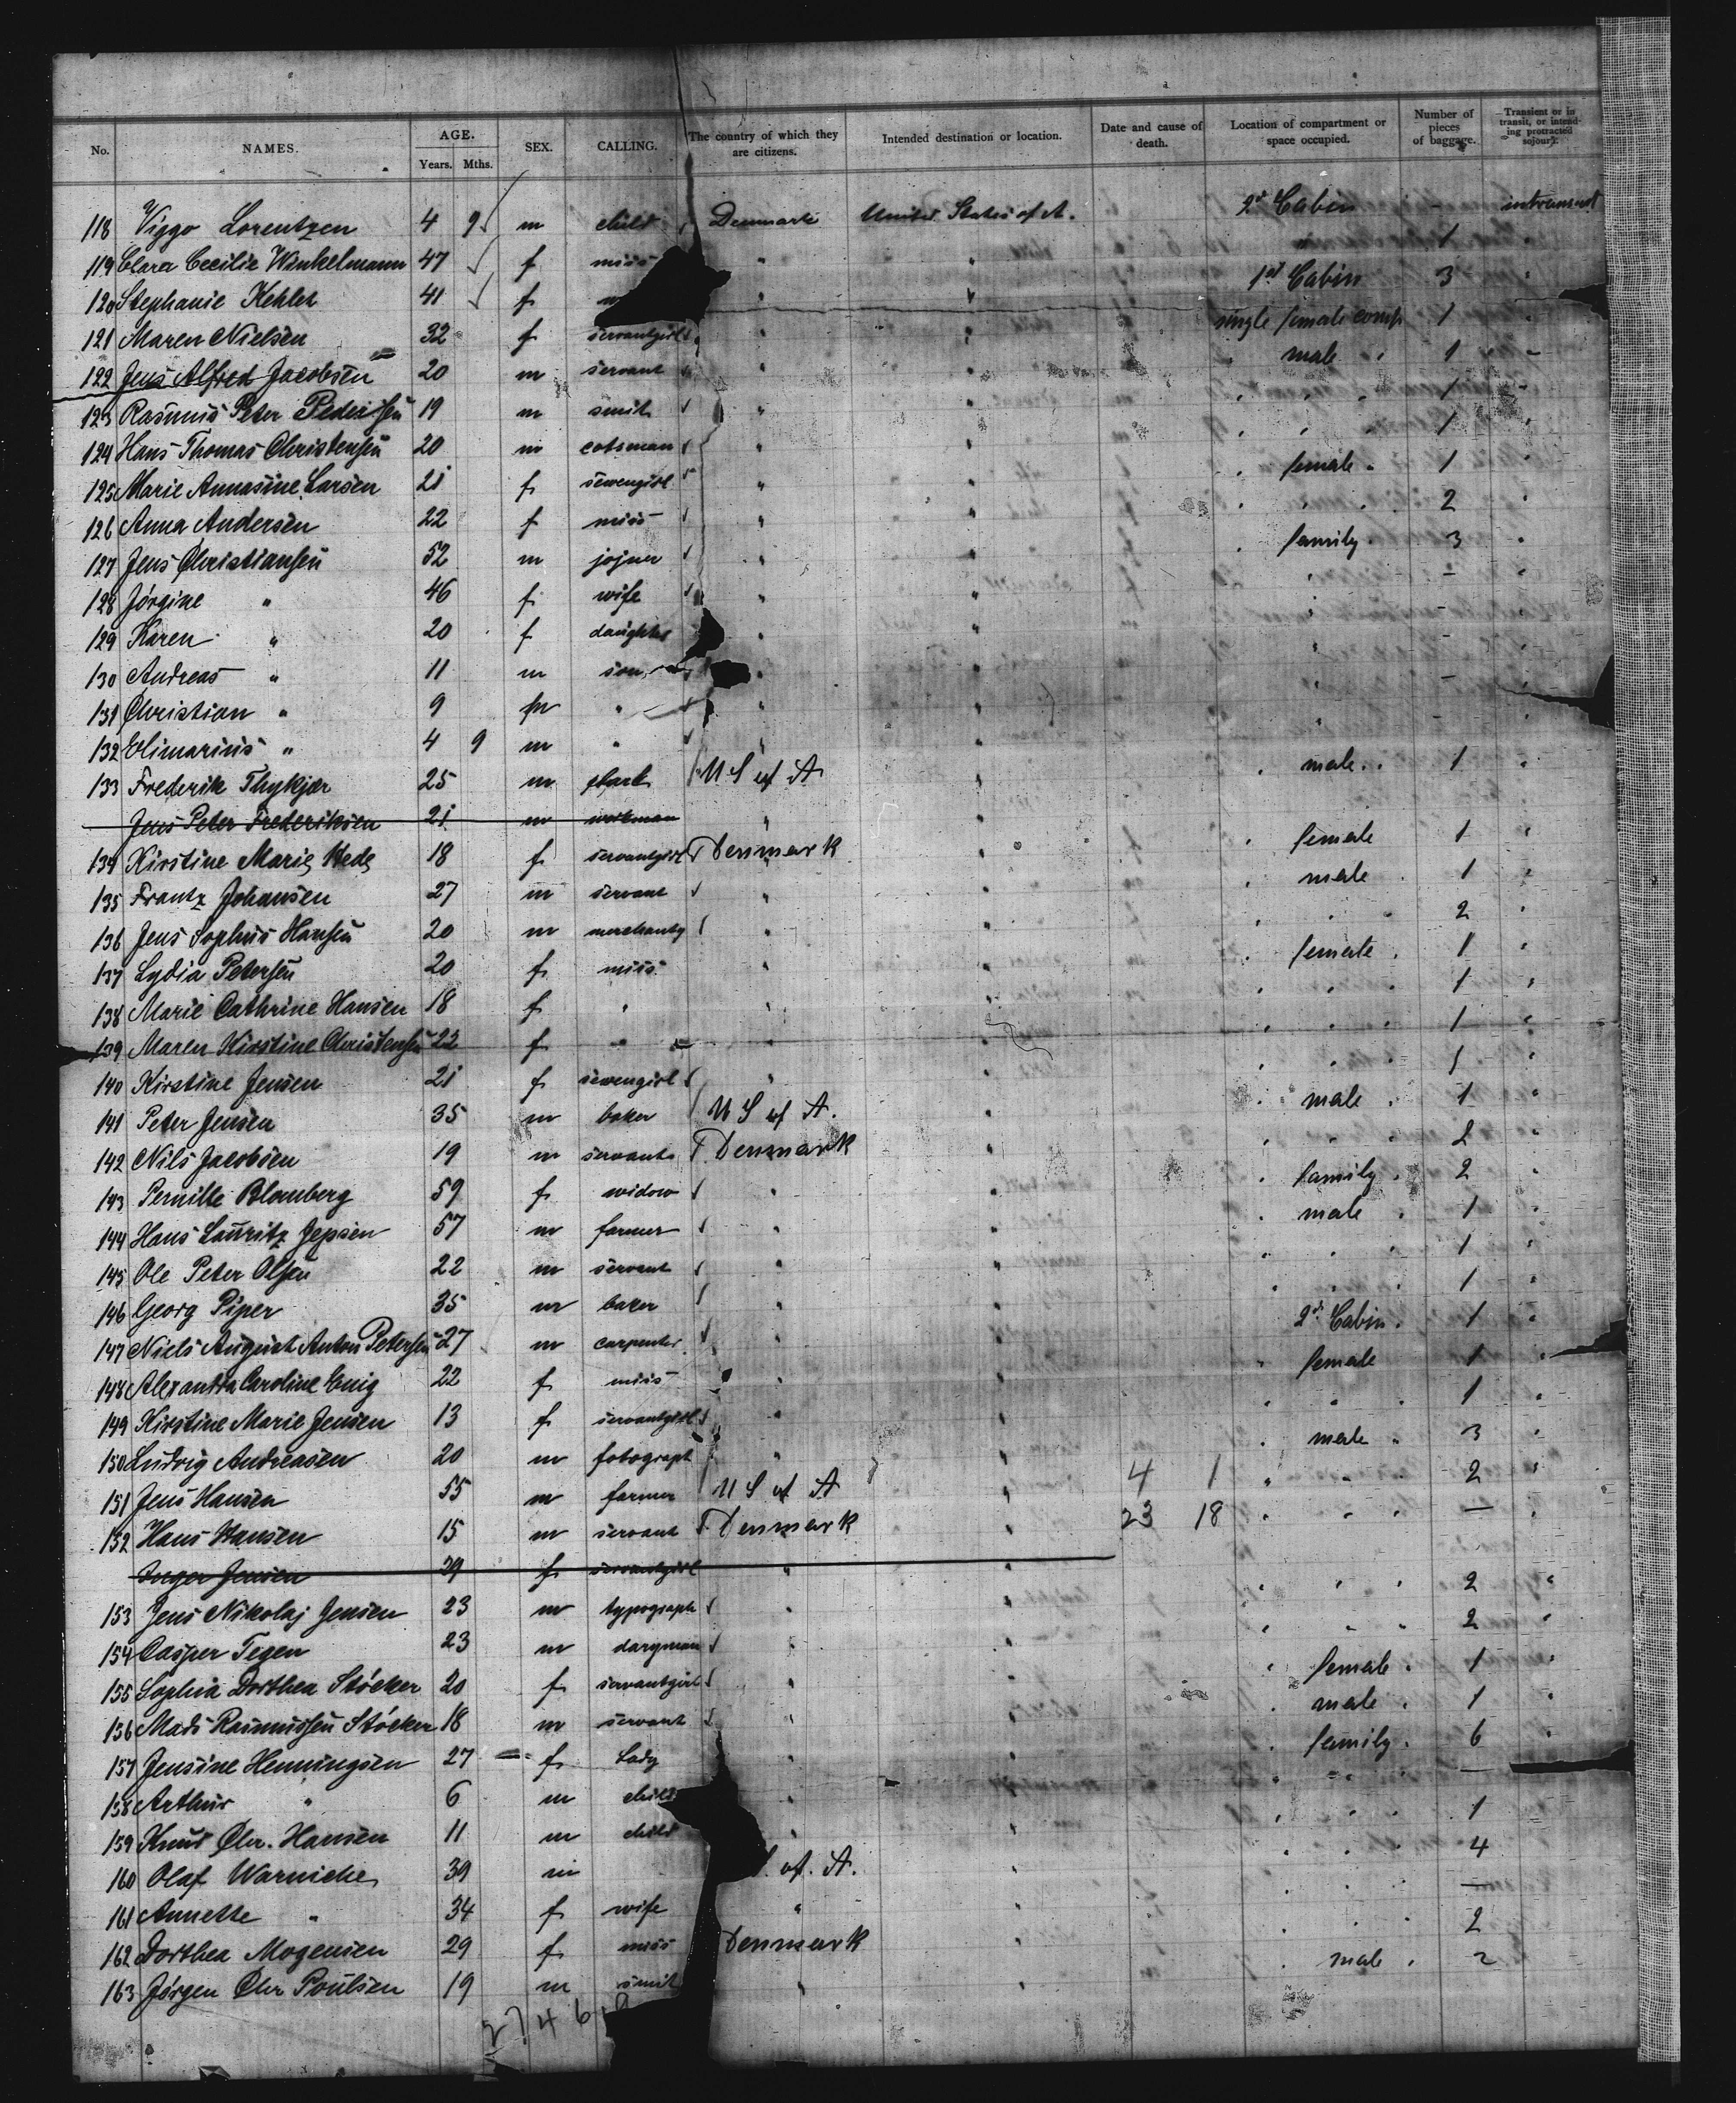 No. NAMES. AGE. Years. Mths. SEX. CALLING. The country of which they are citizens. Intended destination or location. Date and cause of death. Location of compartment or space occupied. Number of pieces of baggage. Transient or in transit, or intending protracted sojourn.
118 Viggo Lorentzen 4 9 m child Denmark United States of A. 2d Cabin - intransist
119 Clara Cecilie Winkelmann 47 f miss " " " 1 "
120 Stephanie Kehlet 41 f " " 1st Cabin 3 "
121 Maren Nielsen 32 f servantgirl " " single female comp 1 "
122 Jens Alfred Jacobsen 20 m servant " " " male " 1 "
123 Rasmus Peter Pedersen 19 m smit " " " " " 1 "
124 Hans Thomas Christensen 20 m cotsman " " " " " 1 "
125 Marie Annasine Larsen 21 f sewengirl " " " female " 1 "
126 Anna Andersen 22 f miss " " " " " 2 "
127 Jens Christiansen 52 m jojner " " " family " 3 "
128 Jørgine " 46 f wife " " " - "
129 Karen " 20 f daughter " " " - "
130 Andreas " 11 m son " " " - "
131 Christian " 9 m " " " " - "
132 Elimarius " 4 9 m " " " " - "
133 Frederik Thykjær 25 m U S of A " " male " 1 "
Jens Peter Frederiksen 21 m workman " "
134 Kirstine Marie Hede 18 f servantgirl Denmark " " female 1 "
135 Frantz Johansen 27 m servant " " " male " 1 "
136 Jens Sophus Hansen 20 m " " " " " 2 "
137 Lydia Petersen 20 f miss " " " female " 1 "
138 Marie Cathrine Hansen 18 f " " " " " " 1 "
139 Maren Kirstine Christensen 22 f " " " " " " 1 "
140 Kirstine Jensen 21 f sewengirl " " " " " 1 "
141 Peter Jensen 35 m baker U S of A. " " male " 1 "
142 Nils Jacobsen 19 m servant Denmark " " " " 2 "
143 Pernille Blomberg 59 f widow " " " family " 2 "
144 Hans Lauritz Jepsen 57 m farmer " " " male " 1 "
145 Ole Peter Olsen 22 m servant " " " " " 1 "
146 Georg Piper 35 m baker " " " " " 1 "
147 Niels August Anton Petersen 27 m carpenter " " 2d Cabin " 1 "
148 Alexandra Caroline 22 f miss " " " female 1 "
149 Kirstine Marie Jensen 13 f servantgirl " " " " " 1 "
150 Ludvig Andreasen 20 m fotograph " " " male " 3 "
151 Jens Hansen 55 m farmer U S of A " 4 1 " " " 2 "
152 Hans Hansen 15 m servant Denmark " 23 18 " " " — "
Inger Jensen 29 f servantgirl " "
153 Jens Nikolaj Jensen 23 m typograph " " " " " 2 "
154 Casper Tegen 23 m daryman " " " " " 2 "
155 Sophia Dorthea Støcker 20 f servantgirl " " " female " 1 "
156 Mads Rasmussen Støcker 18 m servant " " " male " 1 "
157 Jensine Henningsen 27 f Lady " " " family " 6 "
158 Arthur " 6 m child " " " " " — "
159 Knud Chr. Hansen 11 m child " " " " " 1 "
160 Olaf Warnicke 39 m S. of. A. " " " " 4 "
161 Annette " 34 f wife " " " " " — "
162 Dorthea Mogensen 29 f miss Denmark " " " " 2 "
163 Jørgen Chr Poulsen 19 m smit " " " male " 2 "